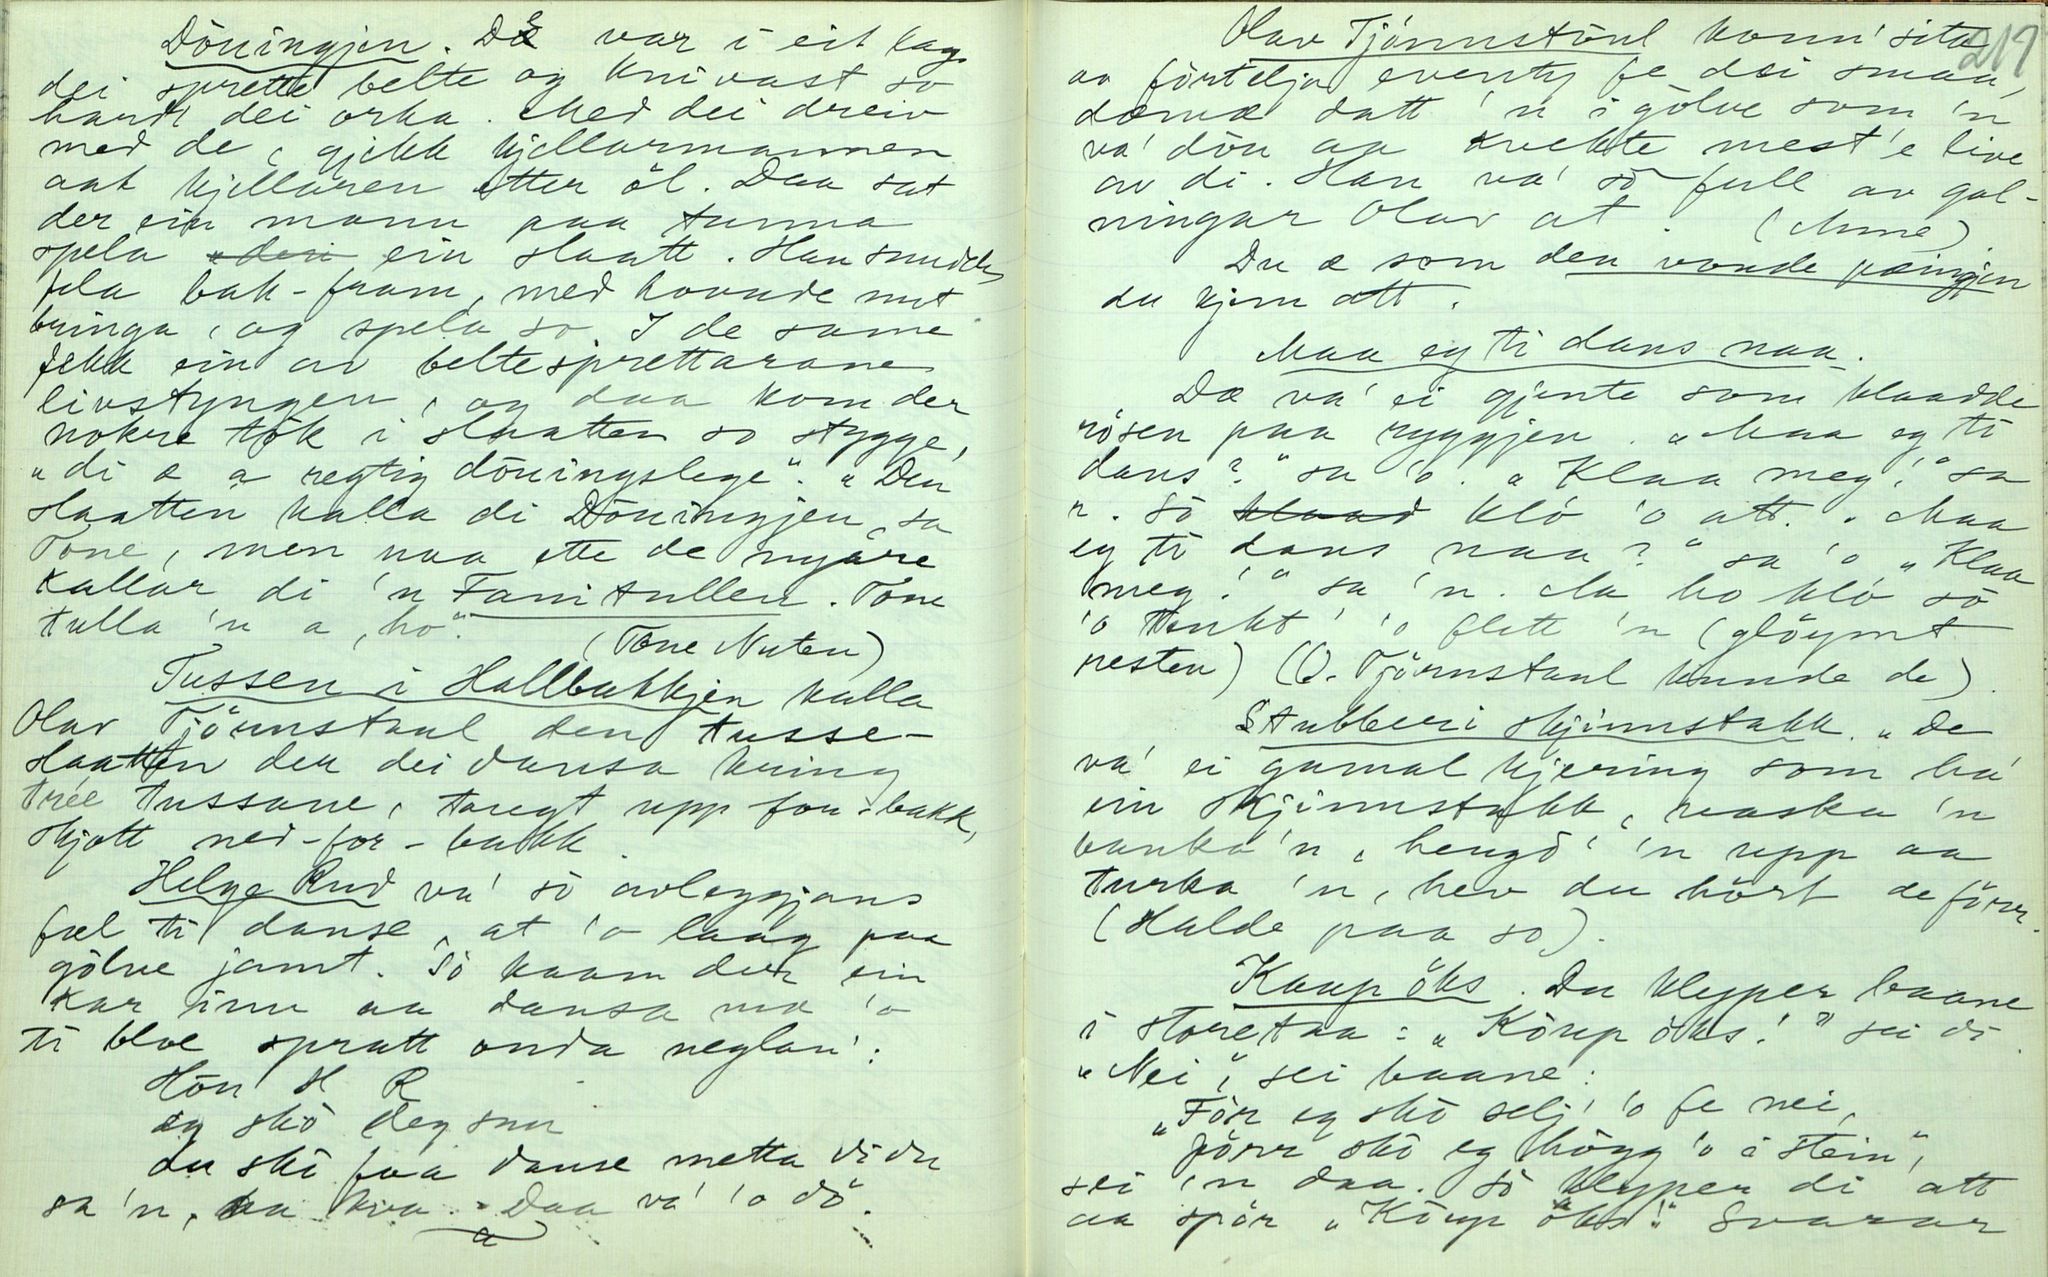 Döningjen. Dæ var i eit lag
dei sprette belte og knivast so
hardt dei orka. Med dei dreiv
med de, gjekk kjellarmannen
aat kjellaren etter öl. Daa sat
der ein mann paa tunna
spela ein slaatt. Han snudde
fela bak-fram, med hovude mot
bringa, og spela so. I de same
fekk ein av beltesprettarane
livstyngen, og daa kom der
nokre tök i slaatten so stygge,
"di æ a regtig döningslege". "Den
slaatten kalla di Döningjen, sa
Tone, men naa ette de nyare
kallar di 'n Fanitullen. Tone
tulla 'n a, ho".
(Tone Nuten)
Tussen i Hallbakkjen kalla
Olav Tjönnstaul den tusse-
slaatten den dei dansa kring
tree tussane, taregt upp fou-bakk,
skjott ned-for-bakk.
Helge Rud va' so avleggjans
fæl ti danse, at 'o laag paa
gölve jamt. So kaam der ein
kar inn aa dansa me 'o
ti bloe spratt onda neglan':
Hön H R
eg skö deg snu
du skö faa danse metta di du
sa 'n, Daa va' 'o dö.
217
Olav Tjönnstöul konn' sita
aa förtelja eventy fe dei smaa,
damæ datt 'n i gölve som 'n
va' dön aa kvekte mest'e live
av di. Han va' so full av gal-
ningar Olav at. (Anne).
Du æ som den vonde pæningjen
du kjem att.
Maa eg ti dans naa.
Dæ va' ei gjente som klaadde
rösen paa ryggjen. "Maa eg ti
dans?" sa 'o. "Klaa meg!" sa
'n. So kló 'o att. "Maa
eg ti dans naa?" sa 'o "Klaa
meg!" sa 'n. Aa ho kló so
'o tenkt' 'o flett 'n (glöymt
resten) (O. Tjönnstaul kunde de).
Stubben i skjinnstakk. "De
va' ei gamal kjering som ha'
ein skjinnstakk, vaska 'n
banka 'n, hengd' 'n upp aa
turka 'n, hev du hört de förr.
(Halde paa so).
Kaup öks. Du klyper baane
i storetaa: "Köup öks!" sei di.
"Nei", sei baane:
"Förr eg skö selj' 'o fe nei,
förr skö eg högg 'o i stein",
sei 'n daa. So klyper di att
aa spör "Köup öks!" Svarar